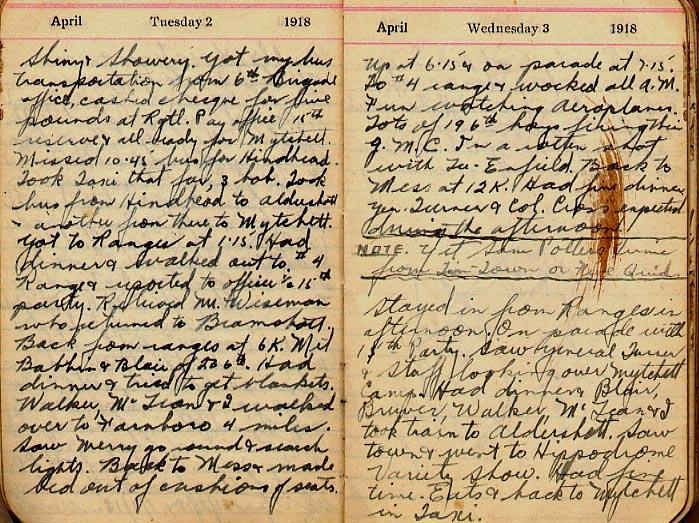 April Tuesday 2 1918
Shiny & Showery. Got my bus
transportation from 6th Brigade
office, cashed cheque for five
pounds at Rgtl. Pay office 15th
reserve & all ready for Mytchett.
Missed 10.45 bus for Hindhead.
Took Taxi that far, 3 bob. Took
bus from Hindhead to Aldershot
& another from there to Mytchett.
Got to Ranges at 1.15. Had
dinner & walked out to #4
Range & reported to officer i/c 15th
party. Relieved Mr. Wiseman
who returned to Bramshott.
Back from ranges at 6 K. Met
Babbin & Blair of 206th. Had
dinner & tried to get blankets.
Walker, McLean & I walked
over to Farnboro 4 miles.
Saw Merry go round & search
lights. Back to Mess & made
bed out of cushions of seats.
April Wednesday 3 1918
Up at 6.15 & on parade at 7.15
To #4 range & worked all A.M.
Fun watching Aeroplanes.
Lots of 196th boys firing their
G.M.C. I'm a rotten shot
with Lee-Enfield. Back to
Mess at 12 K. Had fine dinner,
Gen. Turner & Col. Cross expected
during the afternoon
NOTE. Sam Potters
from or
Stayed in from Ranges in
afternoon. On parade with
15th Party. Saw General Turner
& Staff looking over Mytchett
Camp. Had dinner & Blair,
Bruver, Walker, McLean & I
took train to Aldershot. Saw
town & went to Hippodrome
Variety Show. Had fine
time. Eats & back to Mytchett
in Taxi.